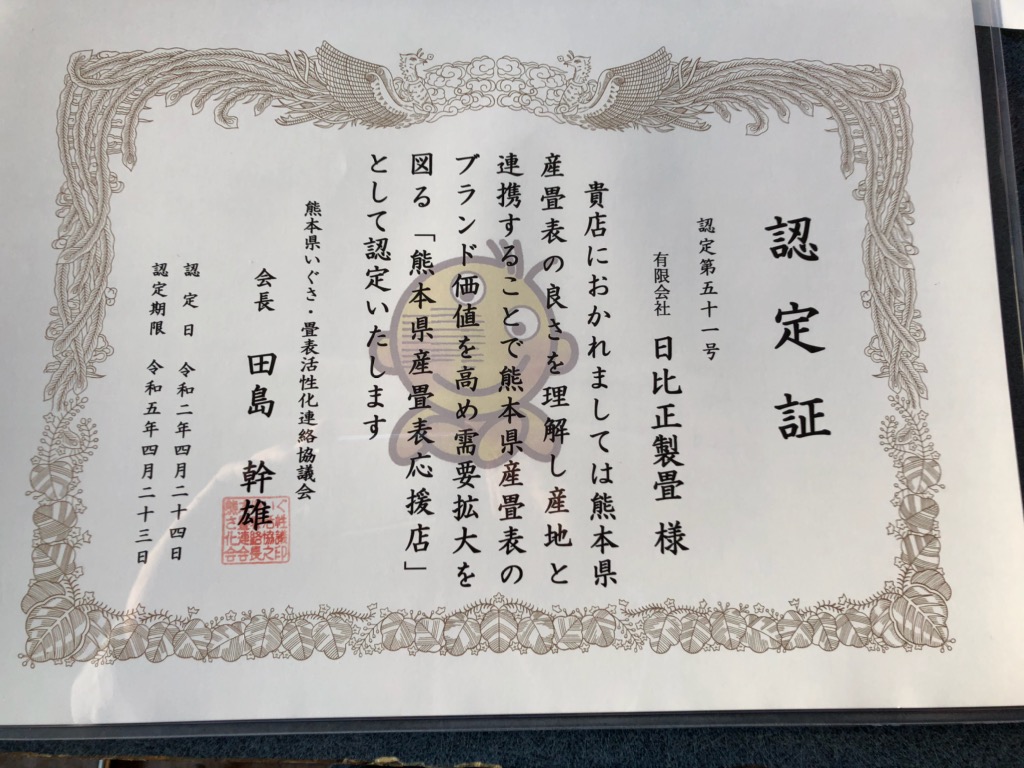 認定証
認定第五十一号
有限会社 日比正製畳 様
貴店におかれましては熊本県
産畳表の良さを理解し産地と
連携することで熊本県産畳表の
ブランド価値を高め需要拡大を
図る「熊本県産畳表応援店」
として認定いたします
熊本県いぐさ・畳表活性化連絡協議会
会長 田島 幹雄
認定日 令和二年四月二十四日
認定期限 令和五年四月二十三日